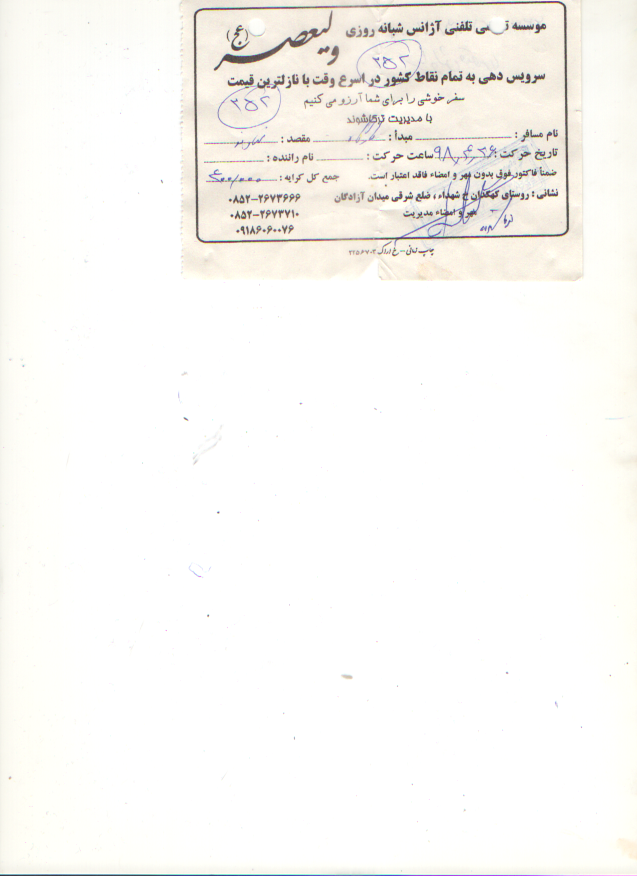 موسسه تلفنی آژانس شبانه روزی ولیعصر (عج)
۳۵۲
سرویس دهی به تمام نقاط کشور در اسرع وقت با نازلترین قیمت
۳۵۲
سفر خوشی را برای شما آرزو می کنیم
با مدیریت ترکاشوند
نام مسافر : مبدأ : مقصد :
تاریخ حرکت : ۹۸٫۴٫۲۶ ساعت حرکت : نام راننده :
ضمناً فاکتور فوق بدون مهر و امضاء فاقد اعتبار است. جمع کل کرایه : ۴۰۰/۰۰۰
نشانی : روستای کهکدان خ شهداء ، ضلع شرقی میدان آزادگان ۰۸۵۲-۲۶۷۳۶۶۶
مهر و امضاء مدیریت ۰۸۵۲-۲۶۷۳۷۱۰
۰۹۱۸۶۰۶۰۰۷۶